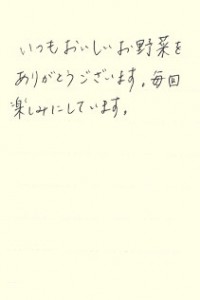 いつもおいしいお野菜を
ありがとうございます。毎回
楽しみにしています。